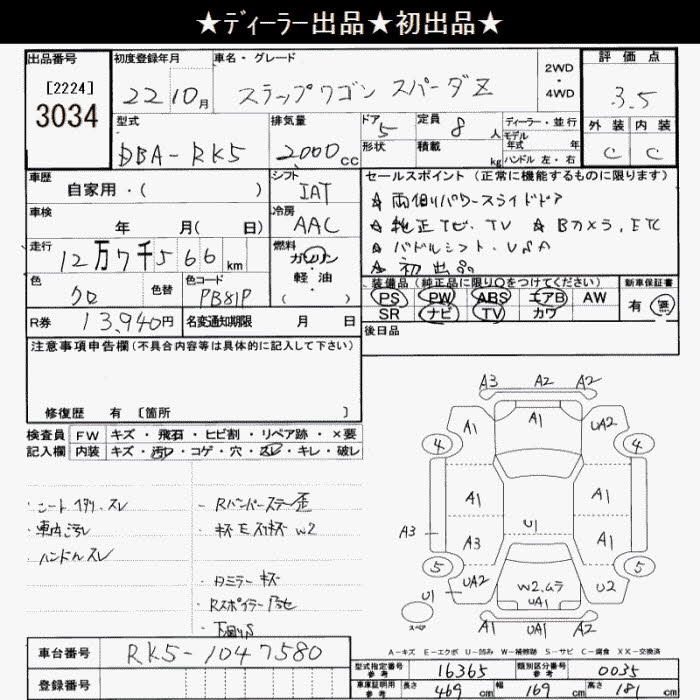 ★ディーラー出品★初出品★
出品番号 初度登録年月 車名・グレード 2WD・4WD 評価点
[2224]
3034
22 10月 ステップワゴン スパーダZ 3.5
型式 排気量 ドア 5 定員 8人 ディーラー・並行 外装 内装
モデル年式 年
DBA-RK5 2000cc 形状 積載 kg ハンドル 左・右 C C
車歴 シフト セールスポイント(正常に機能するものに限ります)
自家用・( ) IAT ★両側パワースライドドア
車検 冷房 ★純正ナビ.TV ★Bカメラ.ETC
年 月( 日) AAC ★パドルシフト.VSA
走行 燃料 ★初出品
12万7千566km ガソリン・軽油 ( )
色 色替 色コード 装備品(純正品に限り○をつけてください) 新車保証書
クロ PB81P PS PW ABS エアB AW 有 無
SR ナビ TV カワ
R券 13,940円 名変通知期限 月 日 後日品
注意事項申告欄(不具合内容等は具体的に記入して下さい)
修復歴 有 [箇所 ]
検査員 FW キズ・飛石・ヒビ割・リペア跡・×要
記入欄 内装 キズ・汚レ・コゲ・穴・スレ・キレ・破レ
・車内汚レ
・ハンドルスレ
・Rバンパーステー歪
・Rスポイラー
A3 A2 A2
A1 A1 UA2
4 4
A1 A1
A3 U1
A3 A1
5 5
UA2 W2.ムラ U2
U1 UA1
スペア A1 UA1 A2
A-キズ E-エクボ U-凹み W-補修跡 S-サビ C-腐食 XX-交換済
車台番号 RK5-1047580
登録番号
型式指定番号 参考 16365 類別区分番号 参考 0035
車庫証明用 参考 長さ 469cm 幅 169cm 高さ 181cm